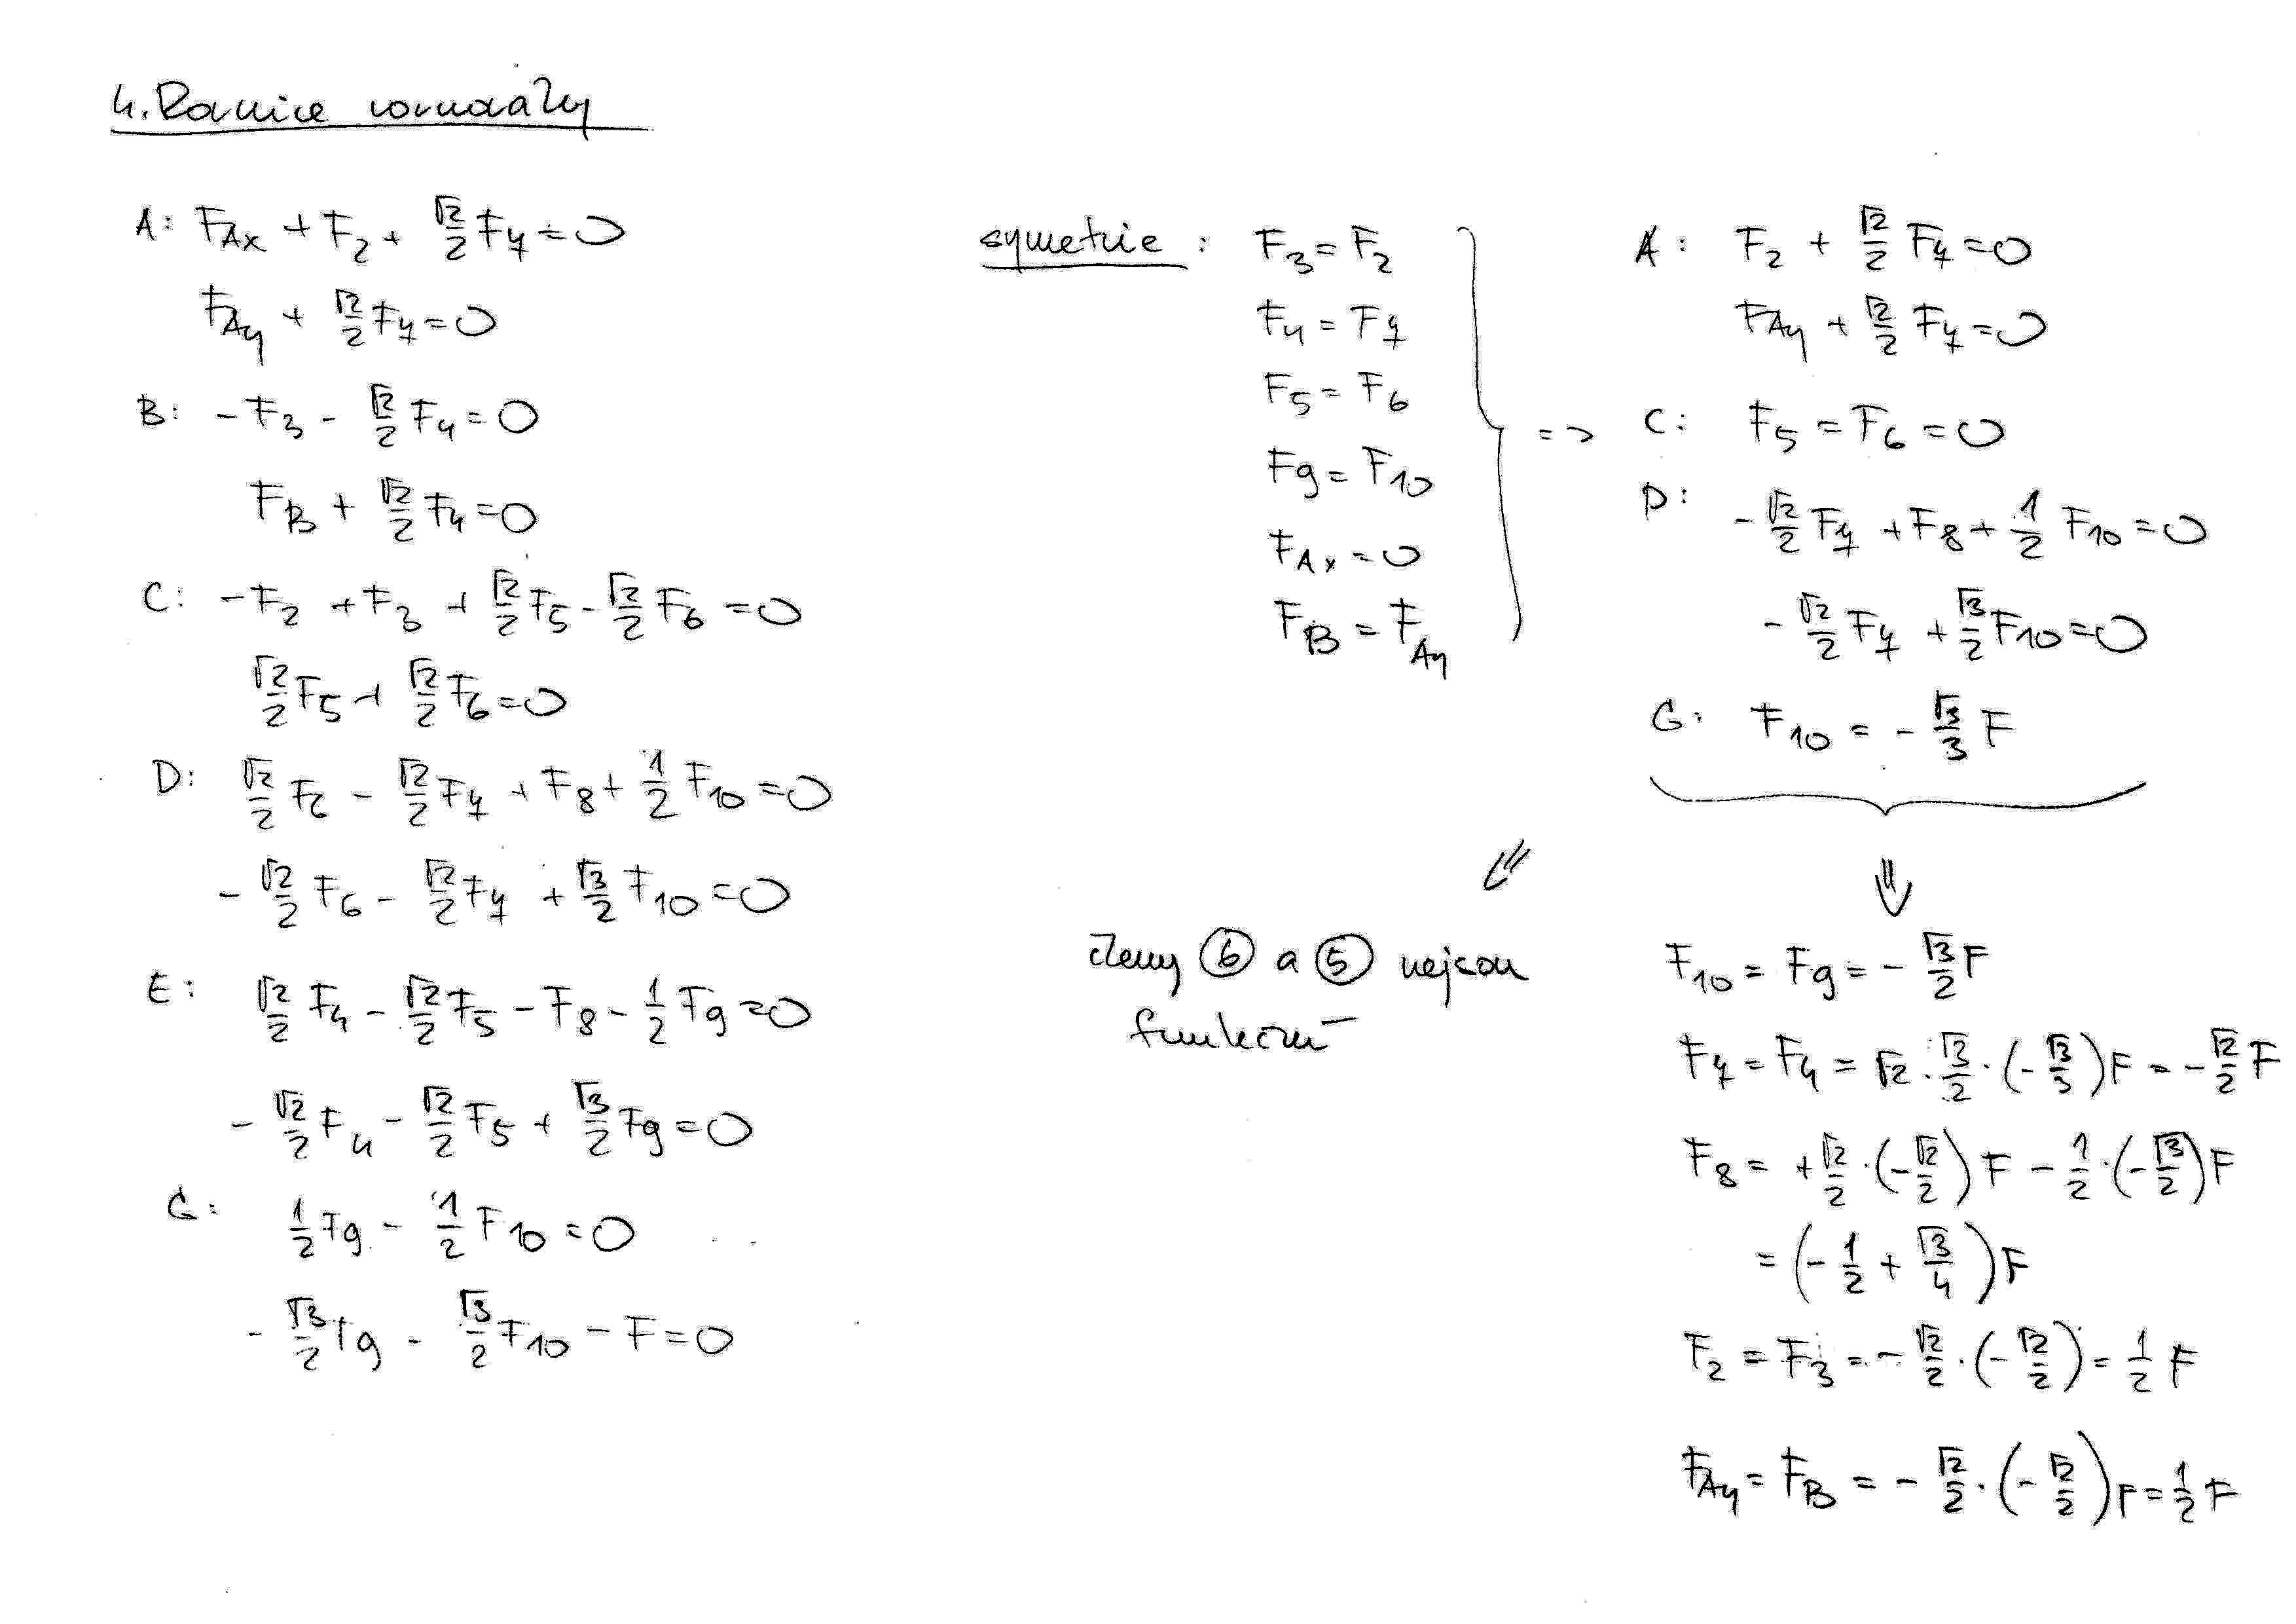 4. Rovnice rovnováhy
A: F_Ax + F_2 + √2/2 F_7 = 0
F_Ay + √2/2 F_7 = 0
B: -F_3 - √2/2 F_4 = 0
F_B + √2/2 F_4 = 0
C: -F_2 + F_3 + √2/2 F_5 - √2/2 F_6 = 0
√2/2 F_5 + √2/2 F_6 = 0
D: √2/2 F_6 - √2/2 F_7 + F_8 + 1/2 F_10 = 0
- √2/2 F_6 - √2/2 F_7 + √3/2 F_10 = 0
E: √2/2 F_4 - √2/2 F_5 - F_8 - 1/2 F_9 = 0
- √2/2 F_4 - √2/2 F_5 + √3/2 F_9 = 0
G: 1/2 F_9 - 1/2 F_10 = 0
- √3/2 F_9 - √3/2 F_10 - F = 0
symetrie: F_3 = F_2
F_4 = F_7
F_5 = F_6
F_9 = F_10
F_Ax = 0
F_B = F_Ay
=>
A: F_2 + √2/2 F_7 = 0
F_Ay + √2/2 F_7 = 0
C: F_5 = F_6 = 0
D: - √2/2 F_7 + F_8 + 1/2 F_10 = 0
- √2/2 F_7 + √3/2 F_10 = 0
G: F_10 = - √3/3 F
členy ⑥ a ⑤ nejsou
funkční
F_10 = F_9 = - √3/2 F
F_7 = F_4 = √2 · √3/2 · (- √3/3) F = - √2/2 F
F_8 = + √2/2 · (- √2/2) F - 1/2 · (- √3/2) F
= (- 1/2 + √3/4) F
F_2 = F_3 = - √2/2 · (- √2/2) = 1/2 F
F_Ay = F_B = - √2/2 · (- √2/2) F = 1/2 F